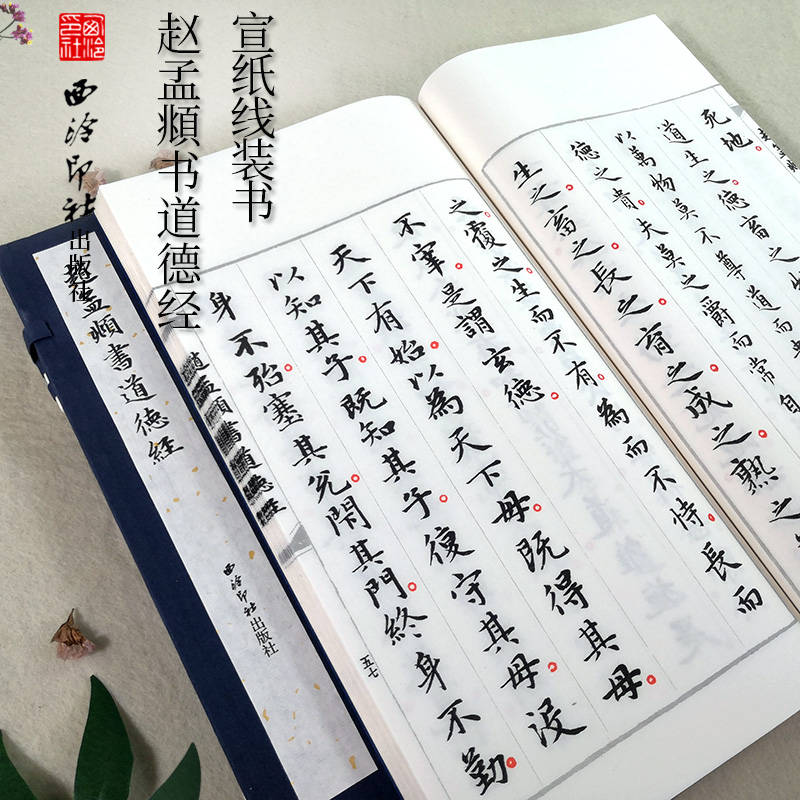 宣纸线装书
赵孟頫书道德经
西泠印社
西泠印社出版社
趙孟頫書道德經
西泠印社出版社
死地
道生之德畜之物
以萬物莫不尊道而
德之貴夫莫之爵而常自
生之畜之長之育之成之熟之
之覆之生而不有為而不恃長而
不宰是謂玄德
天下有始以為天下母既得其母
以知其子既知其子復守其母没
身不殆塞其兌閇其門終身不勤
趙孟頫書道德經
五七